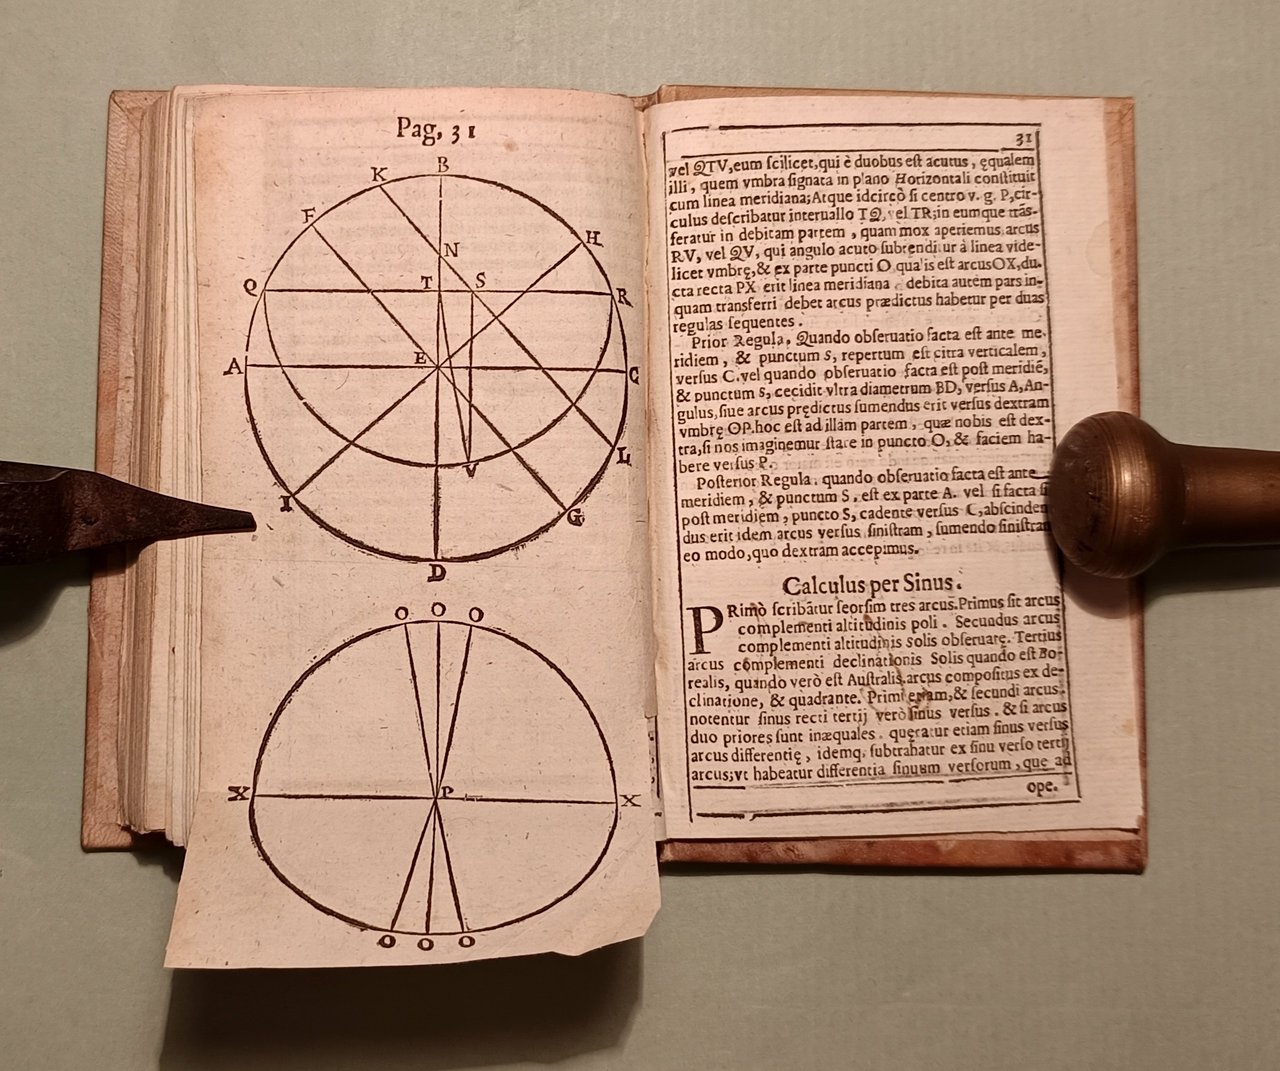 Pag, 31
B
K
F
H
N
Q
T
S
R
A
E
C
L
V
I
G
D
O O O
X
P
X
O O O
31
vel QTV, eum ſcilicet, qui è duobus eſt acutus, ęqualem
illi, quem vmbra ſignata in plano Horizontali conſtituit
cum linea meridiana; Atque idcircò ſi centro v. g. P, cir-
culus deſcribatur interuallo TQ, vel TR; in eumque trāſ-
feratur in debitam partem, quam mox aperiemus arcus
RV, vel QV, qui angulo acuto ſubtenditur à linea vide-
licet vmbrę, & ex parte puncti O qualis eſt arcus OX, du.
cta recta PX erit linea meridiana. debita autem pars in-
quam transferri debet arcus prædictus habetur per duas
regulas ſequentes.
Prior Regula. Quando obſeruatio facta eſt ante me-
ridiem, & punctum S, repertum eſt citra verticalem,
verſus C. vel quando obſeruatio facta eſt poſt meridiē,
& punctum S, cecidit vltra diametrum BD, verſus A, An-
gulus, ſiue arcus prędictus ſumendus erit verſus dextram
vmbrę OP. hoc eſt ad illam partem, quæ nobis eſt dex-
tra, ſi nos imaginemur ſtare in puncto O, & faciem ha-
bere verſus P.
Poſterior Regula. quando obſeruatio facta eſt ante
meridiem, & punctum S. eſt ex parte A. vel ſi facta ſi
poſt meridiem, puncto S, cadente verſus C, abſcinden
dus erit idem arcus verſus ſiniſtram, ſumendo ſiniſtram
eo modo, quo dextram accepimus.
Calculus per Sinus.
PRimò ſcribātur ſeorſim tres arcus. Primus ſit arcus
complementi altitudinis poli. Secundus arcus
complementi altitudinis Solis obſeruatę. Tertius
arcus complementi declinationis Solis quando eſt Bo-
realis, quando verò eſt Auſtralis, arcus compoſitus ex de-
clinatione, & quadrante. Primi etiam, & ſecundi arcus
notentur ſinus recti tertij verò ſinus verſus. & ſi arcus
duo priores ſunt inæquales. quęratur etiam ſinus verſus
arcus differentię, idemq. ſubtrahatur ex ſinu verſo tertij
arcus; vt habeatur differentia ſinuum verſorum, que ad
ope.